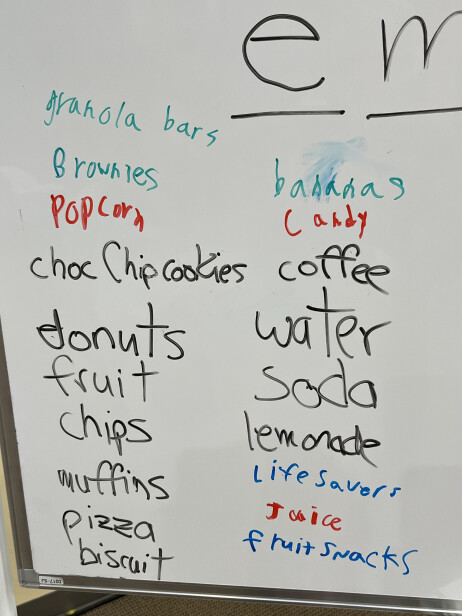 em
granola bars
Brownies
POPCorn
choc Chip cookies
donuts
fruit
chips
muffins
pizza
biscuit
bananas
Candy
coffee
water
soda
lemonade
Lifesavors
Juice
fruit snacks